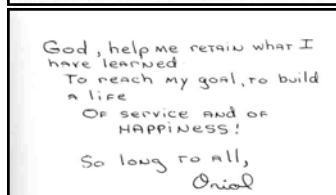 God, help me retain what I
have learned
To reach my goal, to build
a life
Of service and of
HAPPINESS!
So long to all,
Oriol